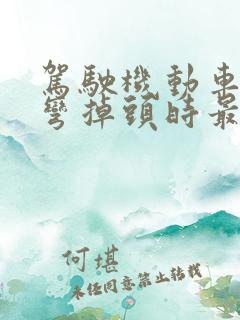 駕駛機動車
彎掉頭時最
何堪
未經同意禁止轉載